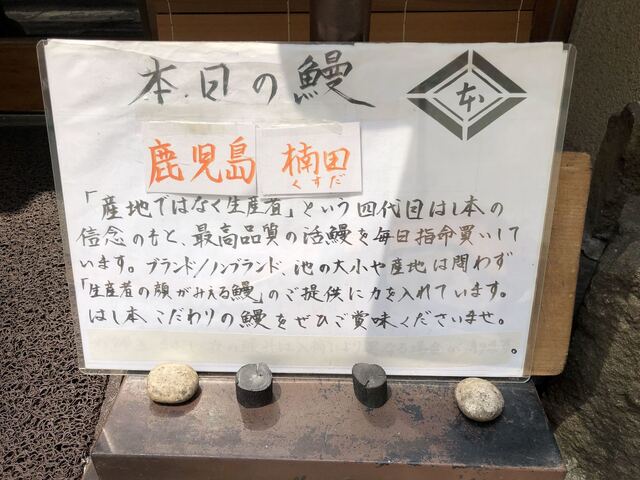 本日の鰻
本
鹿児島
楠田
くすだ
「産地ではなく生産者」という四代目はし本の
信念のもと、最高品質の活鰻を毎日指命買いして
います。ブランド/ノンブランド、池の大小や産地は問わず
「生産者の顔がみえる鰻」のご提供に力を入れています。
はし本こだわりの鰻をぜひご賞味くださいませ。